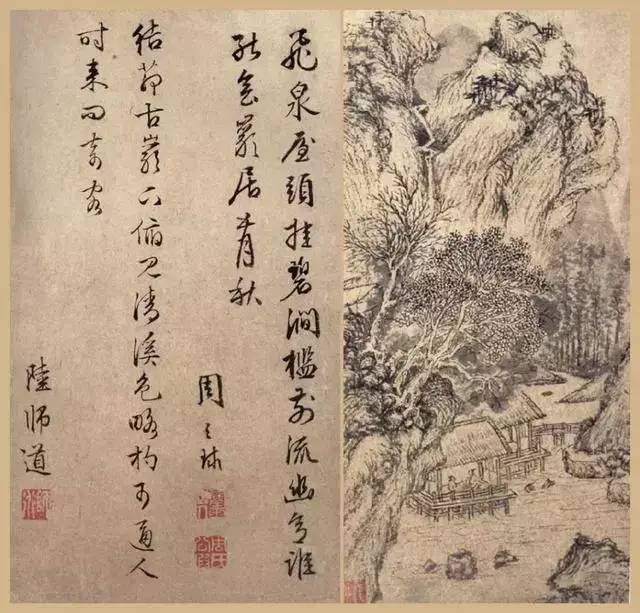 飛泉屋頭挂碧澗檻前流幽意誰
能會巖居秋
周天球
結茆古巖下俯見清溪色略彴可通人
時來問奇客
陸師道